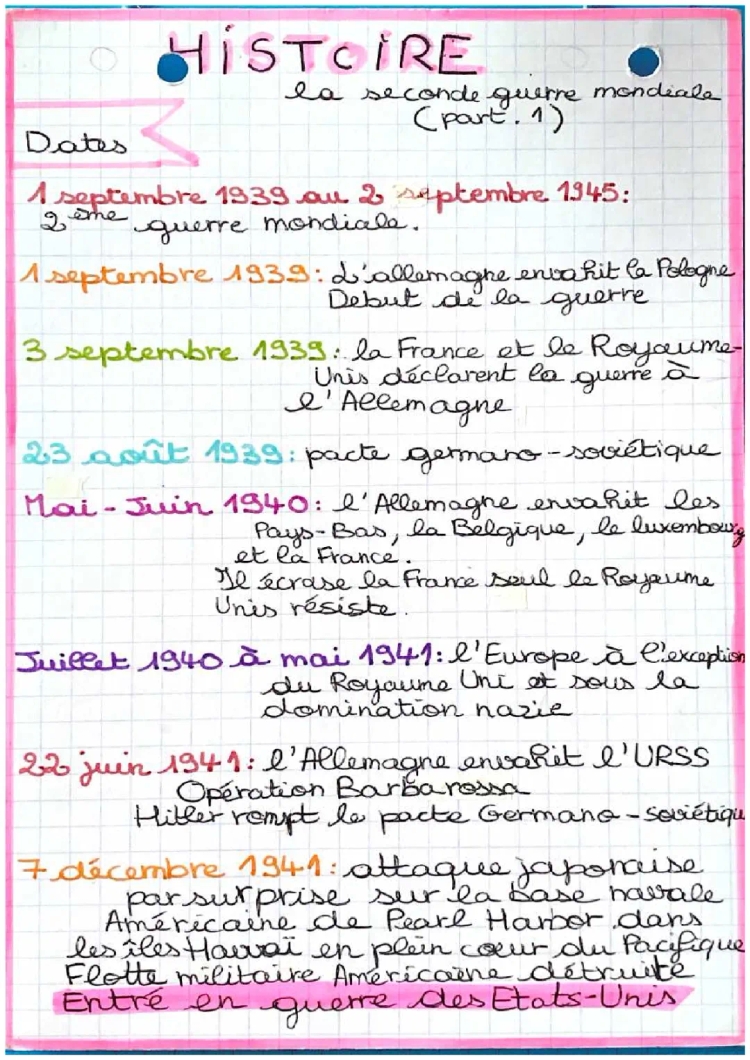 HISTOIRE
la seconde guerre mondiale
(part. 1)
Dates
1 septembre 1939 au 2 septembre 1945:
2ème guerre mondiale.
1 septembre 1939: L'allemagne envahit la Pologne
Debut de la guerre
3 septembre 1939: la France et le Royaume-
Unis déclarent la guerre à
l'Allemagne
23 août 1939: pacte germano-soviétique
Mai-Juin 1940: l'Allemagne envahit les
Pays-Bas, la Belgique, le luxembourg
et la France.
Il écrase la France seul le Royaume
Unis résiste.
Juillet 1940 à mai 1941: l'Europe à l'exception
du Royaume Uni et sous la
domination nazie
22 juin 1941: l'Allemagne envahit l'URSS
Opération Barbarossa
Hitler rompt le pacte Germano-soviétique
7 décembre 1941: attaque japonaise
par surprise sur la base navale
Américaine de Pearl Harbor dans
les îles Hawaï en plein cœur du Pacifique
Flotte militaire Américaine détruite
Entré en guerre des Etats-Unis